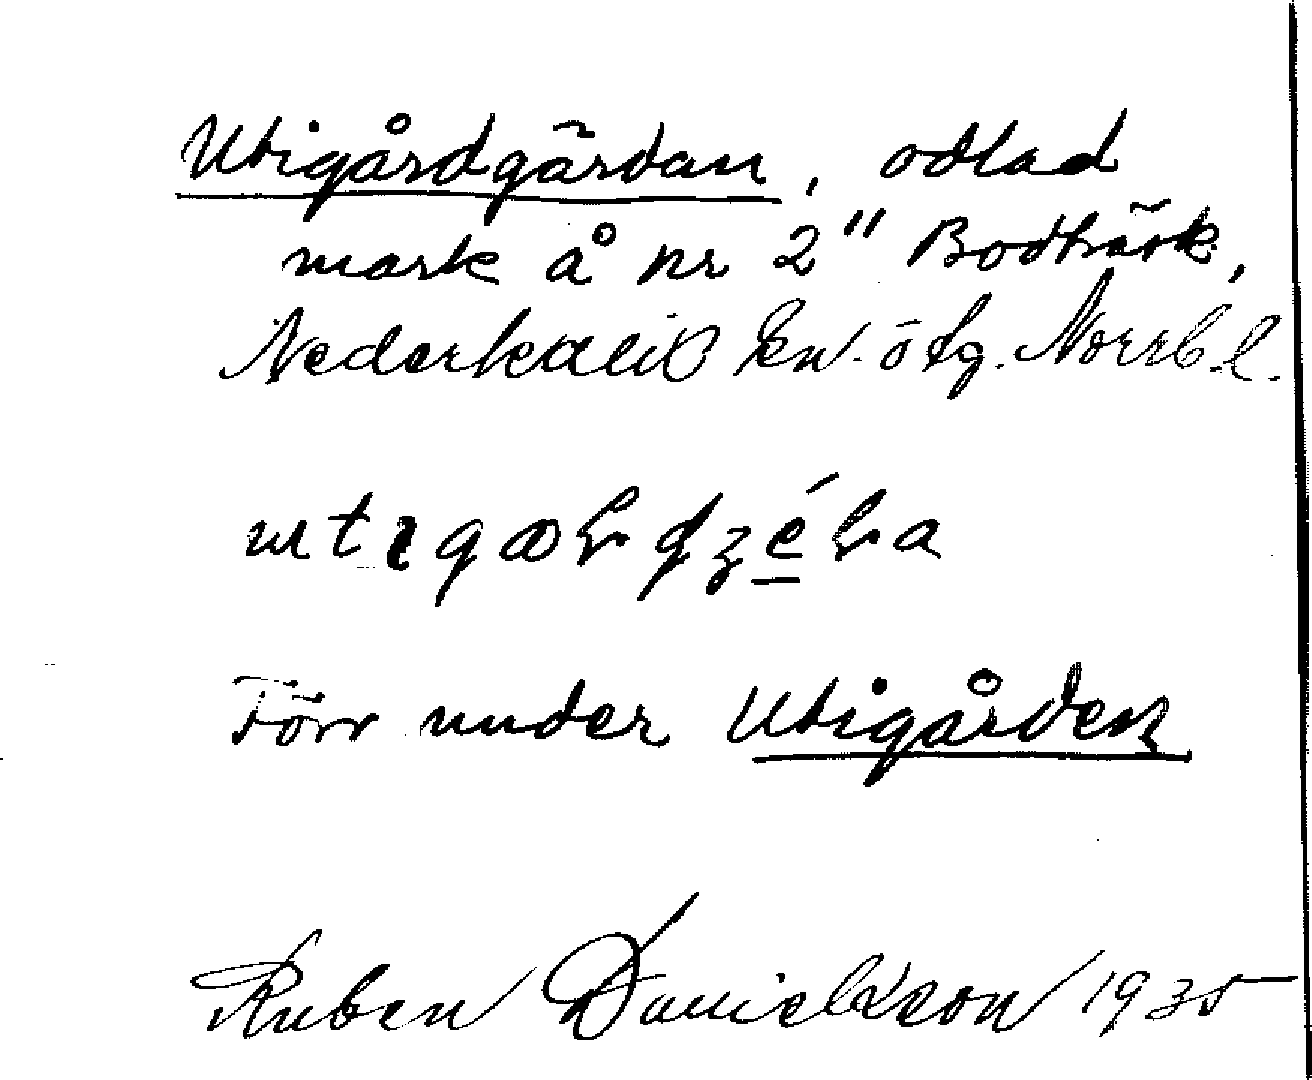 Utigårdgärdan, odlad
mark å nr 2" Bodträsk,
Nederkalix sn. ö tg. Norrb.l.
Förr under Utigården
Ruben Danielsson 1935